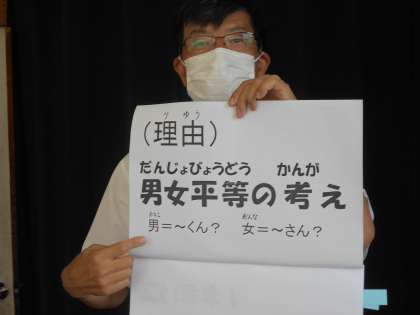 りゆう
（理由）
だんじょびょうどう かんが
男女平等の考え
おとこ おんな
男＝～くん？ 女＝～さん？